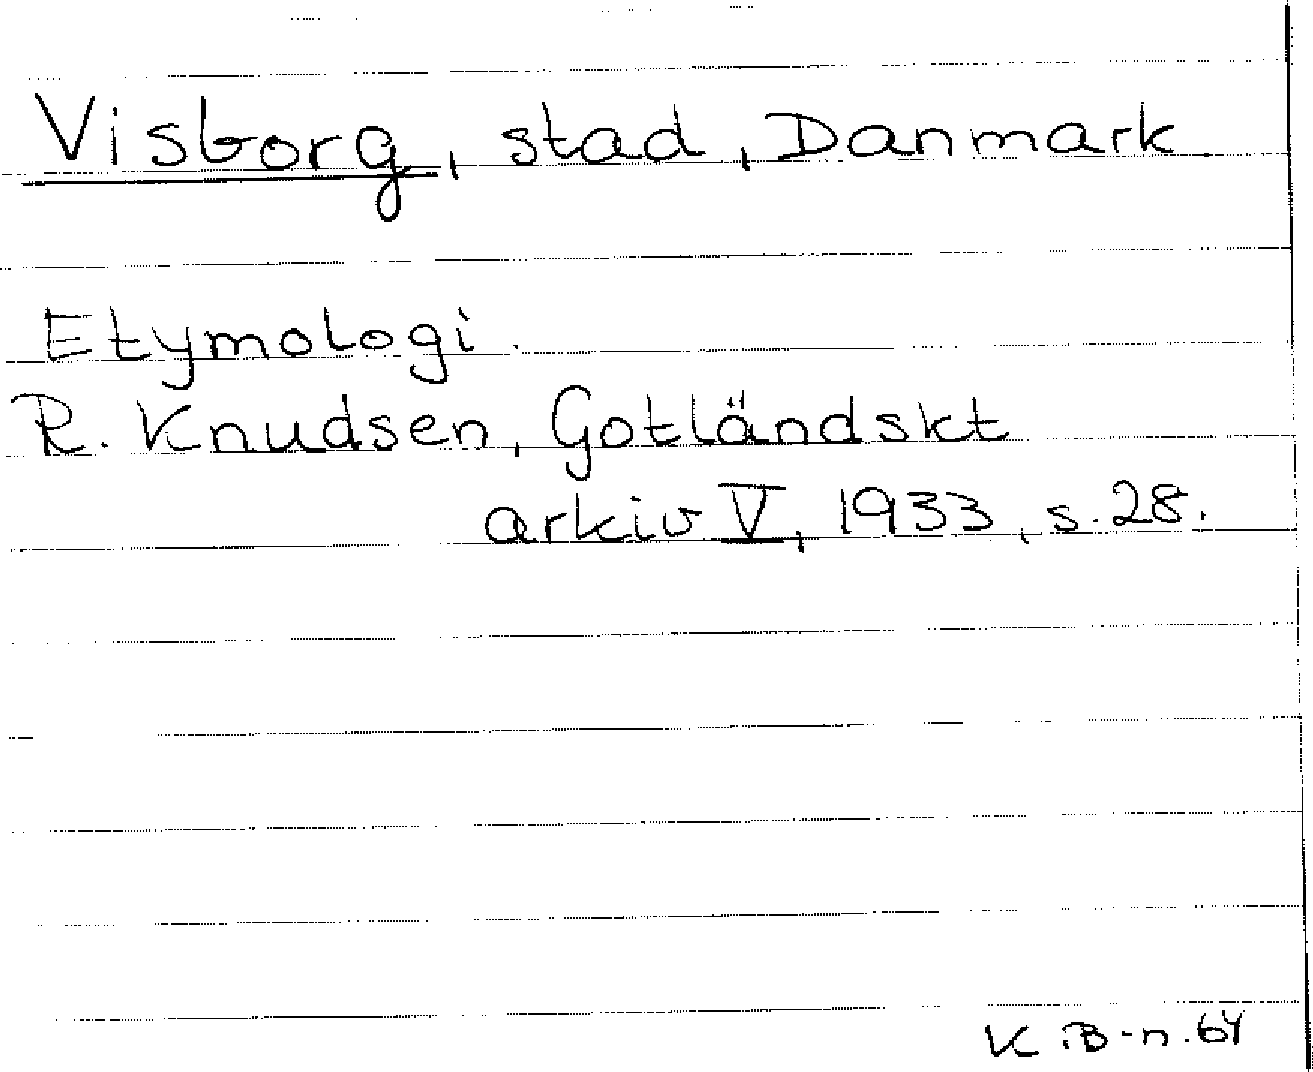 Visborg, stad, Danmark
Etymologi.
R. Knudsen, Gotländskt
arkiv V, 1933, s. 28.
K.B-n. 64